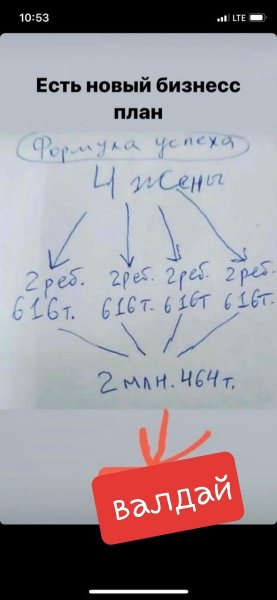 10:53
LTE
Есть новый бизнесс
план
Формула успеха
4 жены
2 реб. 2 реб. 2 реб. 2 реб.
616т. 616т. 616т 616т.
2 млн. 464т.
Валдай